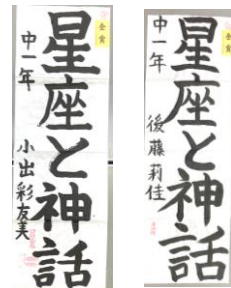 金賞
星座と神話
中一年
小出彩友美
金賞
星座と神話
中一年
後藤莉佳